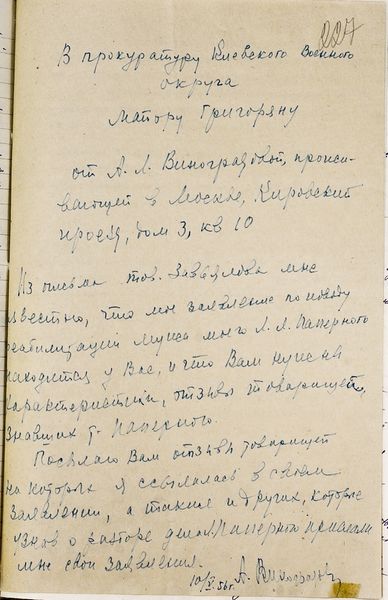 227
В прокуратуру Киевского Военного
округа
Майору Григоряну
от А. Л. Виноградовой, прожи-
вающей в Москве, Кировский
проезд, дом 3, кв 10
Из письма тов. Завьялова мне
известно, что мое заявление по поводу
реабилитации мужа моего Л. Л. Паперного
находится у Вас, и что Вам нужны
характеристики, отзывы товарищей,
знавших т. Паперного.
Посылаю Вам отзывы товарищей
на которых я ссылалась в своем
заявлении, а также и других, которые
узнав о разборе дела Паперного прислали
мне свои заявления.
10/X 56г. А. Виноградова